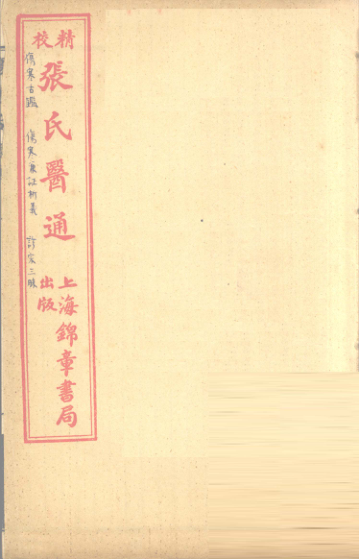 精校
張氏醫通
上海錦章書局
出版
傷寒舌鑑 傷寒兼証析義 診宗三昧